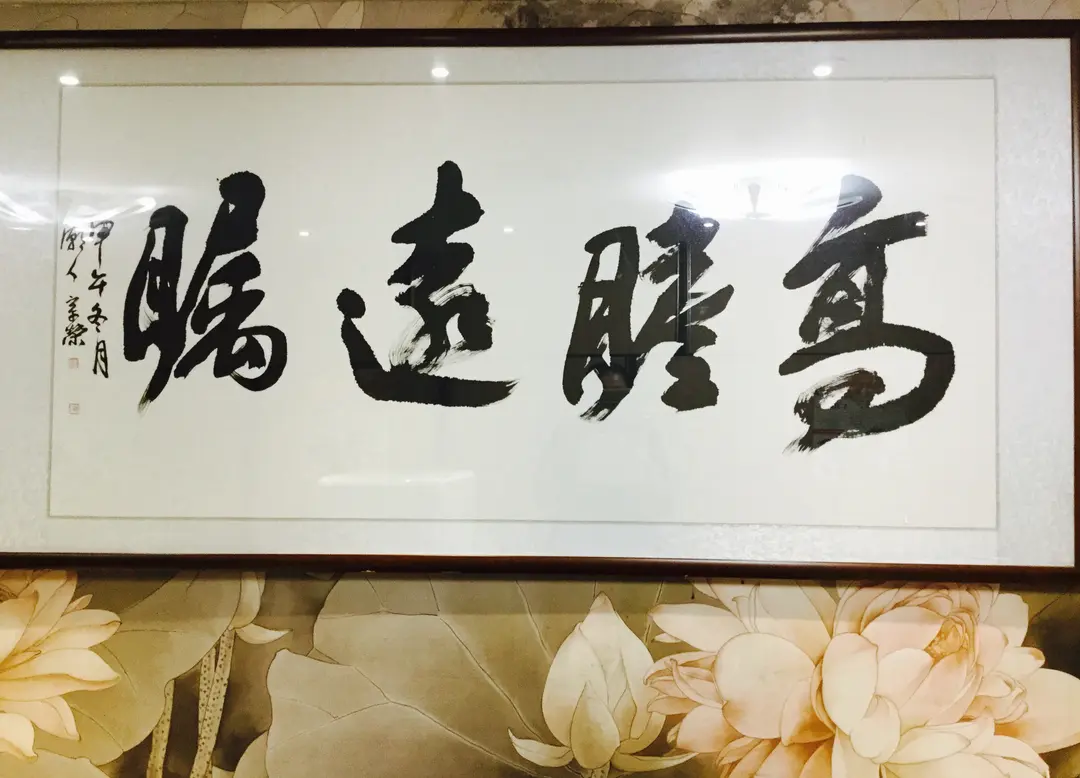 高瞻遠矚
甲午冬月